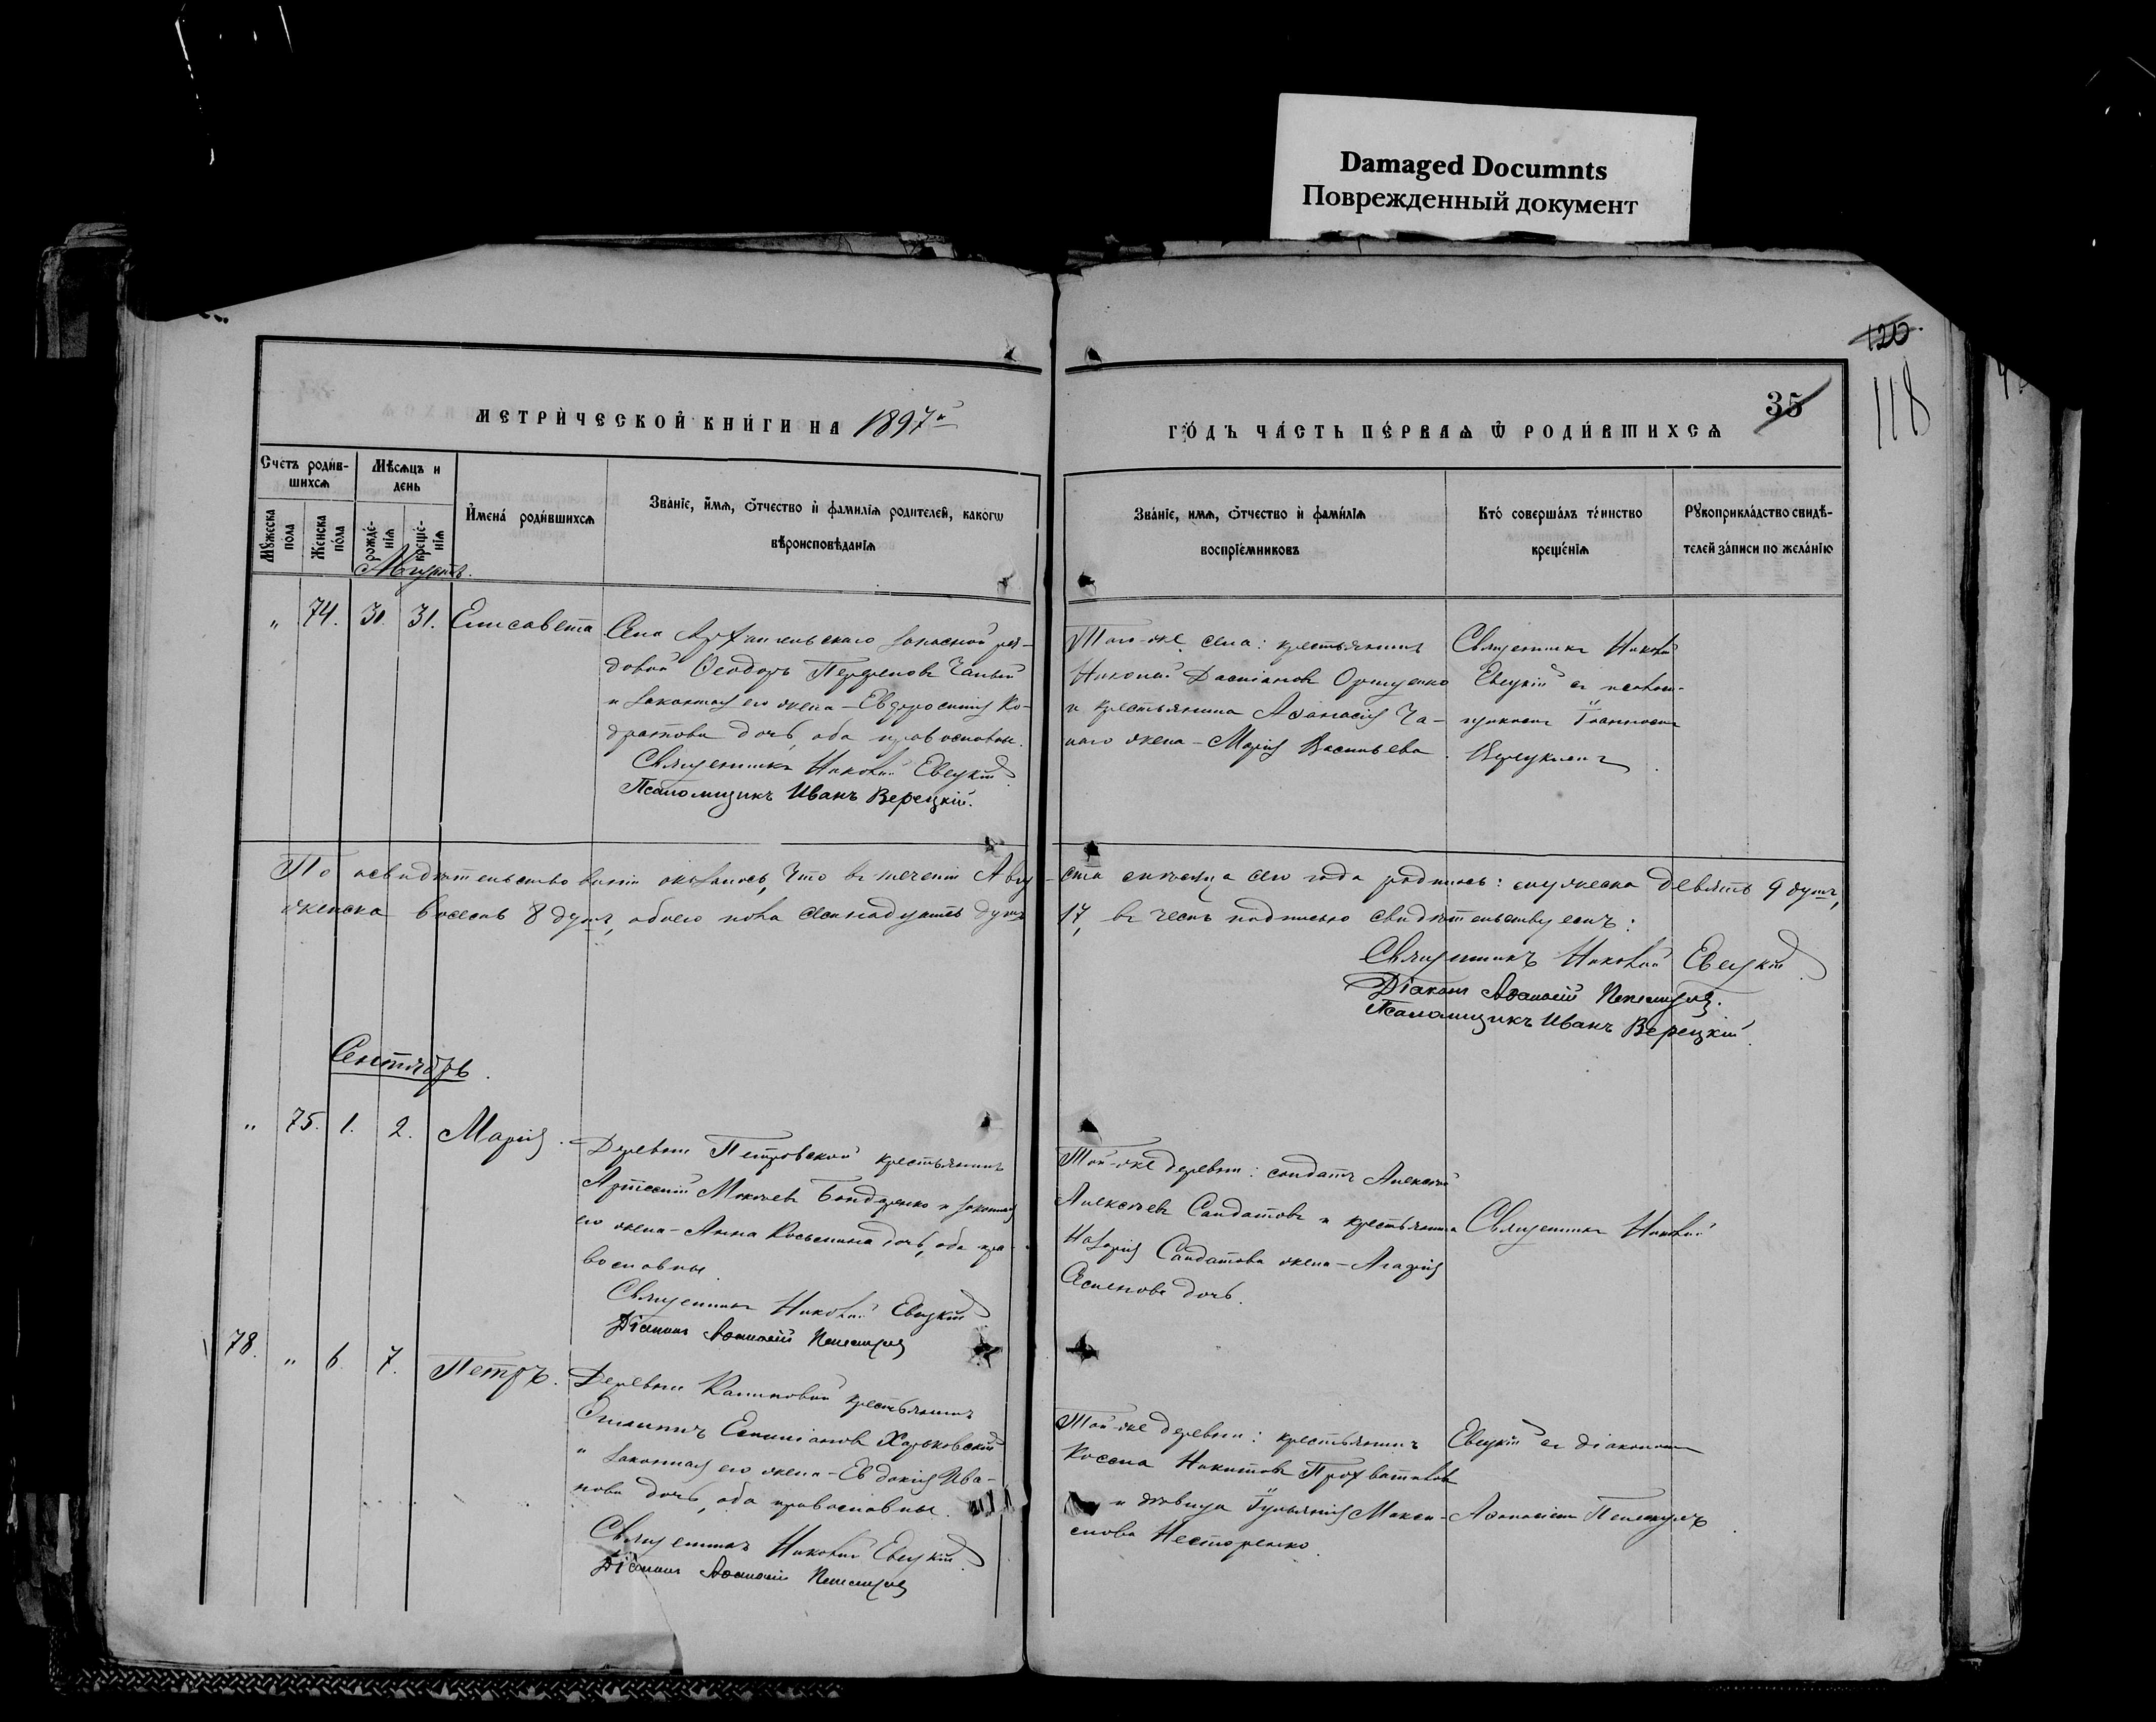 Damaged Documnts
Поврежденный документ
120
118
35
МЕТРИ́ЧЕСКОЙ КНИ́ГИ НА 1897й
ГО́ДЪ ЧА́СТЬ ПЕ́РВАѦ Ѿ РОДИ́ВШИХСѦ
Счетъ роди́в-
шихсѧ
Мѣсѧцъ и
день
Мꙋжеска
по́ла
Женска
по́ла
рожде́-
нїѧ
креще́-
нїѧ
И҆мена́ роди́вшихсѧ
Зва́нїе, и҆́мѧ, ѻ҆́тчество и҆ фами́лїѧ роди́телей, како́гѡ
вѣроисповѣ́данїѧ
Зва́нїе, имѧ, ѻ҆́тчество и҆ фами́лїѧ
воспрїе́мниковъ
Кто̀ соверша́лъ та́инство
креще́нїѧ
Рꙋкоприкла́дство свидѣ́-
телей за́писи по жела́нїю
Августъ.
" 74. 30. 31. Елисавета
Села Архангельскаго запасной ря-
довой Ѳеодоръ Чалый
и законная его жена - Евфросинія Ко-
дратова дочь, оба православны.
Священникъ Николай Евецкій
Псаломщикъ Иванъ Верецкій.
Того-же села: крестьянинъ
Николай
и крестьянина Аѳанасія Ча-
лаго жена - Марія Васильева.
Священникъ Николай
Евецкій съ псалом-
щикомъ Іоанномъ
Верецкимъ.
По освидѣтельствованіи оказалось, что въ теченіи Авгу-
ста мѣсяца сего года родилось: мужеска девять 9 душъ,
женска восемь 8 душъ, обоего пола семнадцать душъ
17, въ чемъ подписью свидѣтельствуемъ:
Священникъ Николай Евецкій
Діаконъ Аѳанасій
Псаломщикъ Иванъ Верецкій
Сентябрь.
" 75. 1. 2. Марія.
Деревни Петровской крестьянинъ
Артемій Бондаренко и законная
его жена - Анна Косьмина дочь, оба пра-
вославны.
Священникъ Николай Евецкій
Діаконъ Аѳанасій
Той-же деревни: солдатъ Алексѣй
Алексѣевъ Солдатовъ и крестьянина
Назарія Солдатова жена - Агафія
Семенова дочь.
Священникъ Николай
78. " 6. 7. Петръ.
Деревни Калиновой крестьянинъ
Харьковскій
и законная его жена - Евдокія Ива-
нова дочь, оба православны.
Священникъ Николай Евецкій
Діаконъ Аѳанасій
Той-же деревни: крестьянинъ
Косма Никитовъ Прохватиловъ
и дѣвица Іуліанія Макси-
мова Нестеренко.
Евецкій съ діакономъ
Аѳанасіемъ